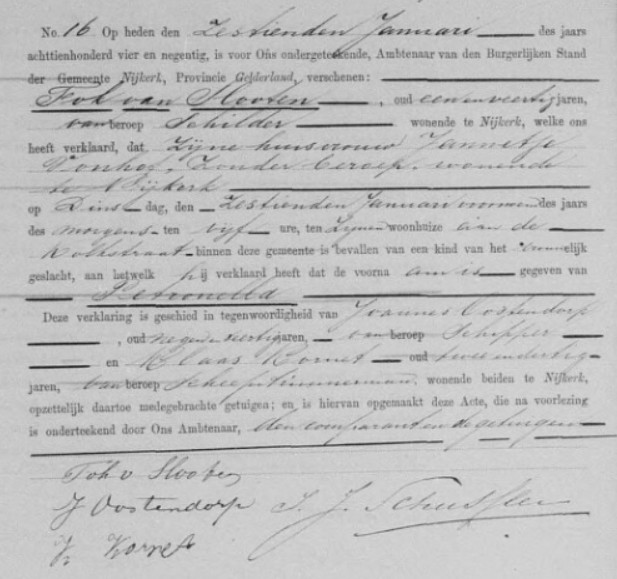 No. 16 Op heden den Zestienden Januari des jaars
achttienhonderd vier en negentig, is voor Ons ondergeteekende, Ambtenaar van den Burgerlijken Stand
der Gemeente Nijkerk, Provincie Gelderland, verschenen:
van Slooten, oud een en veertig jaren,
van beroep Schilder wonende te Nijkerk, welke ons
heeft verklaard, dat Zijne huisvrouw Jannetje
Vonhof, Zonder beroep, wonende
te Nijkerk
op Dinsdag, den Zestienden Januari voormeld des jaars
des morgens ten vijf ure, ten Zijnen woonhuize aan de
Kolkstraat binnen deze gemeente is bevallen van een kind van het vrouwelijk
geslacht, aan hetwelk hij verklaard heeft dat de voornaam is gegeven van
Petronella
Deze verklaring is geschied in tegenwoordigheid van Joannes Oostendorp
, oud negen en veertig jaren, van beroep Schipper
en Klaas Kornet oud twee en dertig
jaren, van beroep Scheepstimmerman, wonende beiden te Nijkerk,
opzettelijk daartoe medegebrachte getuigen; en is hiervan opgemaakt deze Acte, die na voorlezing
is onderteekend door Ons Ambtenaar, den comparant en de getuigen
v Slooten
J Oostendorp
K Kornet